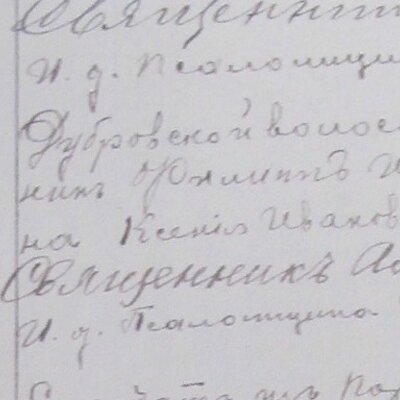 Священни
И. д. Псаломщи
Дубровской волос
никъ Филиппъ И
на Ксенія Иванов
Священникъ
И. д. Псаломщика